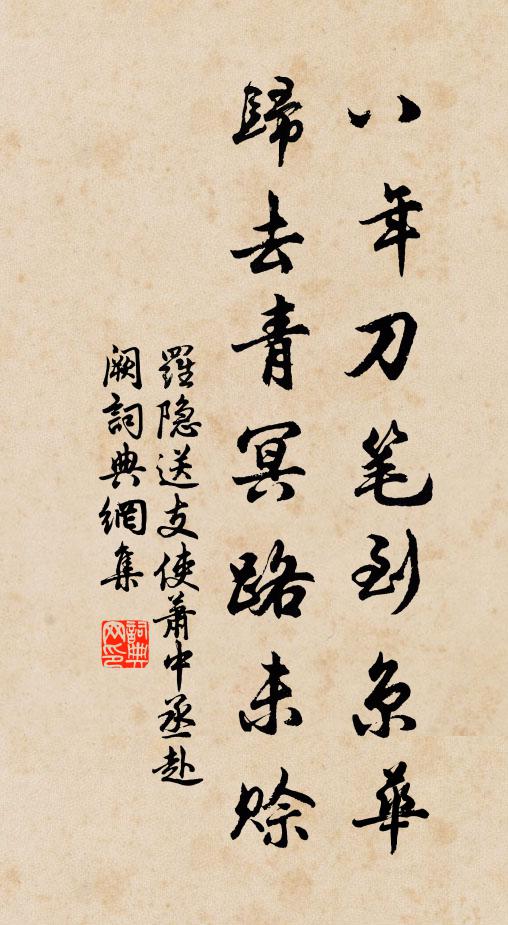 八年刀笔到京華
歸去青冥路未賒
羅隐送支使蕭中丞赴
闕詞典網集
詞典
网印